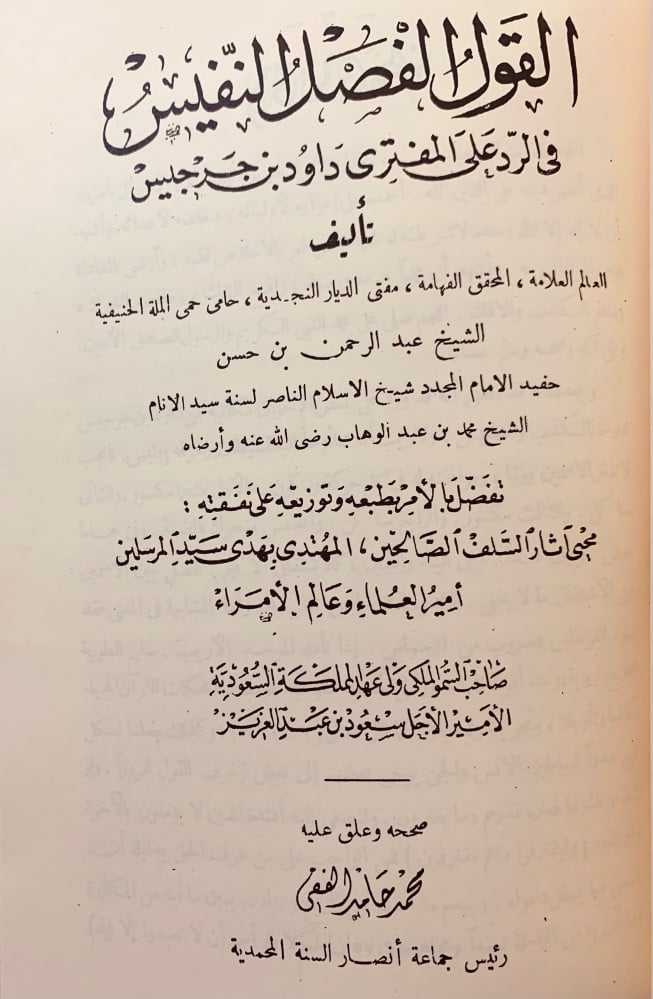 القول الفصل النفيس
في الرد على المفترى داود بن جرجيس
تأليف
العالم العلامة ، المحقق الفهامة ، مفتى الديار النجدية ، حامى حمى الملة الحنيفية
الشيخ عبد الرحمن بن حسن
حفيد الامام المجدد شيخ الاسلام الناصر لسنة سيد الانام
الشيخ محمد بن عبد الوهاب رضى الله عنه وأرضاه
تفضل بالأمر بطبعه وتوزيعه على نفقته :
محيى آثار السلف الصالحين ، المهتدى بهدى سيد المرسلين
أمير العلماء وعالم الأمراء
صاحب السمو الملكى ولى عهد المملكة السعودية
الأمير الأجل سعود بن عبد العزيز
صححه وعلق عليه
محمد حامد الفقى
رئيس جماعة أنصار السنة المحمدية